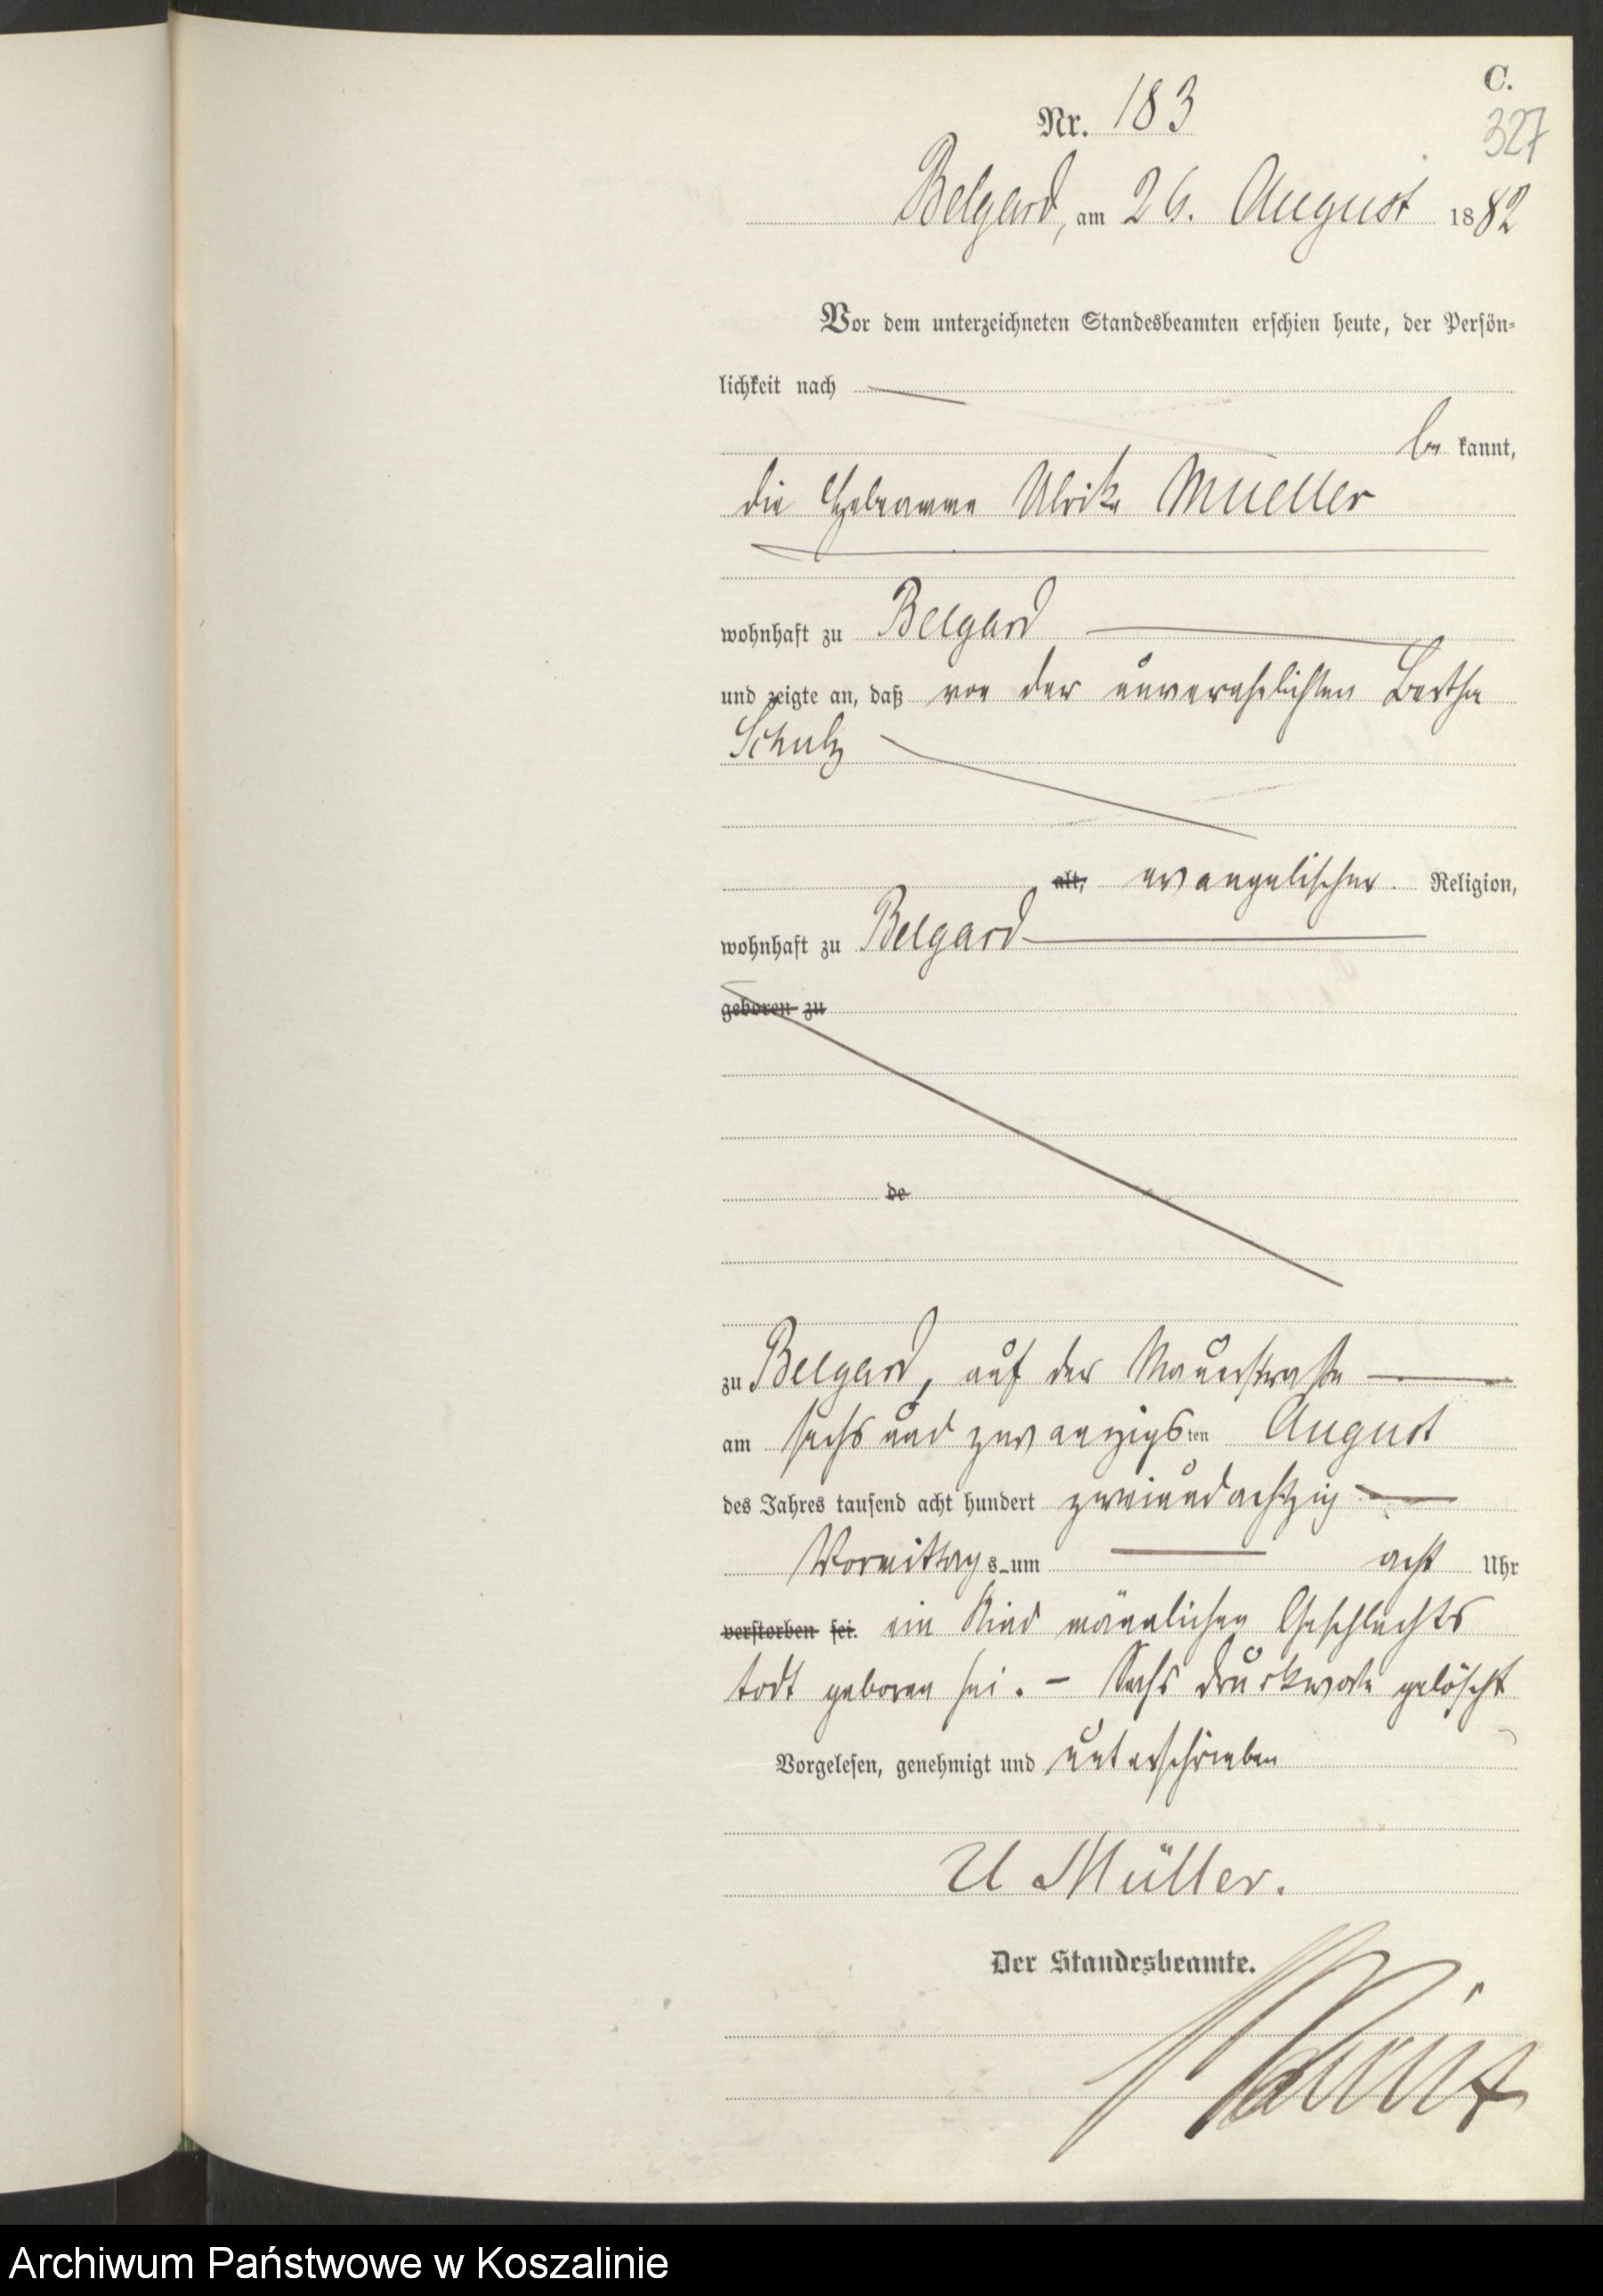 C.
Nr. 183
327
Belgard, am 26. August 1882
Vor dem unterzeichneten Standesbeamten erschien heute, der Persön-
lichkeit nach
be kannt,
die Hebamme Ulrike Mueller
wohnhaft zu Belgard
und zeigte an, daß von der unverehelichten Bertha
Schulz
alt, evangelischer Religion,
wohnhaft zu Belgard
geboren zu
de
zu Belgard, auf der Mauerstraße
am sechs und zwanzigsten August
des Jahres tausend acht hundert zweiundachtzig
Vormittags um acht Uhr
verstorben sei. ein Kind männlichen Geschlechts
todt geboren sei. – Sechs Druckworte gelöscht
Vorgelesen, genehmigt und unterschrieben
U Müller.
Der Standesbeamte.
Archiwum Państwowe w Koszalinie